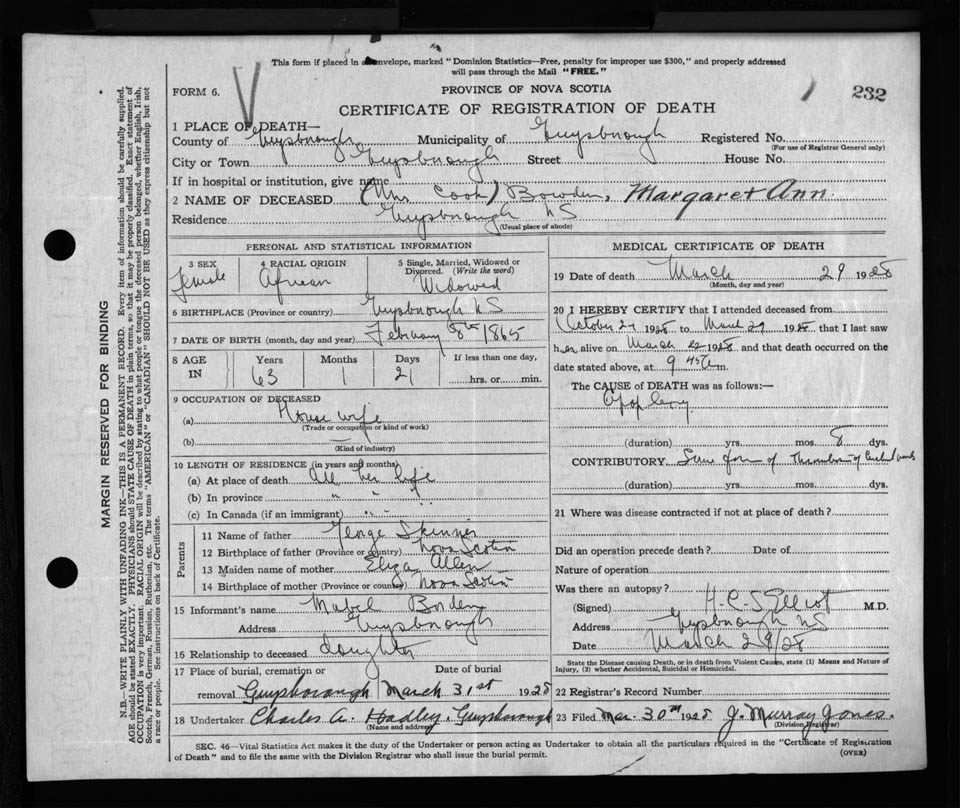 This form if placed in an envelope, marked "Dominion Statistics—Free, penalty for improper use $300," and properly addressed
will pass through the Mail "FREE."
FORM 6.
PROVINCE OF NOVA SCOTIA
232
CERTIFICATE OF REGISTRATION OF DEATH
1 PLACE OF DEATH—
County of Guysborough Municipality of Guysborough Registered No.
(For use of Registrar General only)
City or Town Guysborough Street House No.
If in hospital or institution, give name
2 NAME OF DECEASED (Mrs Cook) Bowden, Margaret Ann.
Residence Guysborough NS
(Usual place of abode)
PERSONAL AND STATISTICAL INFORMATION
3 SEX 4 RACIAL ORIGIN 5 Single, Married, Widowed or
Divorced. (Write the word)
female African Widowed
6 BIRTHPLACE (Province or country) Guysborough NS
7 DATE OF BIRTH (month, day and year) February 8th 1865
8 AGE IN Years Months Days If less than one day,
63 1 21 hrs. or min.
9 OCCUPATION OF DECEASED
(a) House wife
(Trade or occupation or kind of work)
(b)
(Kind of industry)
10 LENGTH OF RESIDENCE (in years and months)
(a) At place of death All her life
(b) In province " " "
(c) In Canada (if an immigrant) " "
Parents
11 Name of father George Skinner
12 Birthplace of father (Province or country) Nova Scotia
13 Maiden name of mother Eliza Allen
14 Birthplace of mother (Province or country) Nova Scotia
15 Informant's name Mabel Borden
Address Guysborough
16 Relationship to deceased daughter
17 Place of burial, cremation or Date of burial
removal Guysborough March 31st 1928
18 Undertaker Charles A. Hadley, Guysborough
(Name and address)
MEDICAL CERTIFICATE OF DEATH
19 Date of death March 29 1928
(Month, day and year)
20 I HEREBY CERTIFY that I attended deceased from
October 27 1928 to March 29 1928 that I last saw
her alive on March 22 1928 and that death occurred on the
date stated above, at 9 45 Am.
The CAUSE of DEATH was as follows:—
Apoplexy
(duration) yrs. mos. 8 dys.
CONTRIBUTORY Some form of Thrombosis of
(duration) yrs. mos. dys.
21 Where was disease contracted if not at place of death?
Did an operation precede death? Date of
Nature of operation
Was there an autopsy?
(Signed) H-C-S Elliot M.D.
Address Guysborough NS
Date March 29/28
State the Disease causing Death, or in death from Violent Causes, state (1) Means and Nature of
Injury, (2) whether Accidental, Suicidal or Homicidal.
22 Registrar's Record Number
23 Filed Mar. 30th 1928 J. Murray Jones.
(Division Registrar)
SEC. 46—Vital Statistics Act makes it the duty of the Undertaker or person acting as Undertaker to obtain all the particulars required in the "Certificate of Registration
of Death" and to file the same with the Division Registrar who shall issue the burial permit.
(OVER)
MARGIN RESERVED FOR BINDING
N.B.—WRITE PLAINLY WITH UNFADING INK—THIS IS A PERMANENT RECORD. Every item of information should be carefully supplied.
AGE should be stated EXACTLY. PHYSICIANS should STATE CAUSE OF DEATH in plain terms, so that it may be properly classified. Exact statement of
OCCUPATION is very important. RACIAL ORIGIN will be described by stating to what people or tongue the deceased person belonged, whether English, Irish,
Scotch, French, German, Russian, Ruthenian, etc. The terms "AMERICAN" or "CANADIAN" SHOULD NOT BE USED as they express citizenship but not
a race or people. See instructions on back of Certificate.